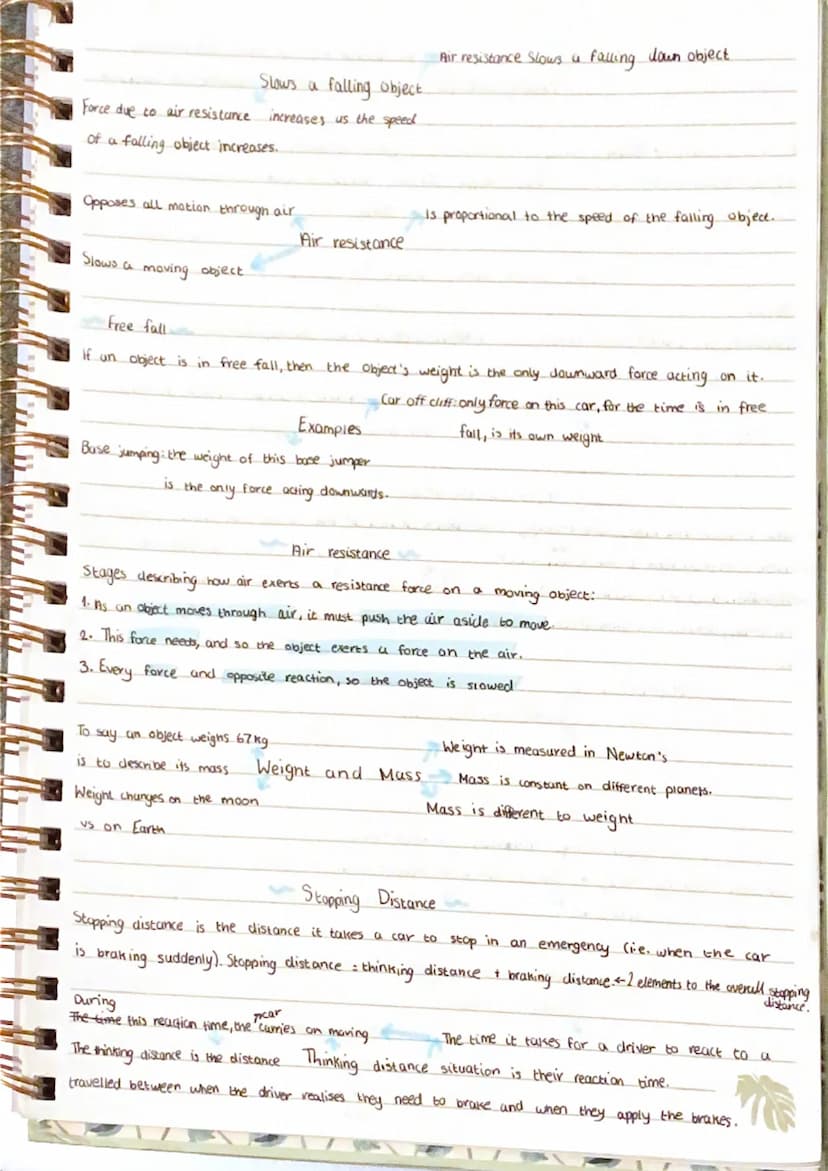 Air resistance Slows a falling down object
Slows a falling object
Force due to air resistance increases us the speed
of a falling object increases.
Opposes all motion through air
Is proportional to the speed of the falling object.
Air resistance
Slows a moving object
Free fall
If an object is in free fall, then the object's weight is the only downward force acting on it.
Car off cliff: only force on this car, for the time is in free
Examples
fall, is its own weight
Base jumping: the weight of this base jumper
is the only force acting downwards.
Air resistance
Stages describing how air exerts a resistance force on a moving object:
1. As an object moves through air, it must push the air aside to move.
2. This force needs, and so the object exerts a force on the air.
3. Every force and opposite reaction, so the object is slowed
To say an object weighs 67kg
Weight is measured in Newton's
is to describe its mass
Weight and Mass
Mass is constant on different planets.
Weight changes on the moon
Mass is different to weight
vs on Earth
Stopping Distance
Stopping distance is the distance it takes a car to stop in an emergency (i.e. when the car
is braking suddenly). Stopping distance = thinking distance + braking distance. ← 2 elements to the overall stopping
distance.
During
The time this reaction time, the car carries on moving
The time it takes for a driver to react to a
The thinking distance is the distance
Thinking distance
situation is their reaction time.
travelled between when the driver realises they need to brake and when they apply the brakes.